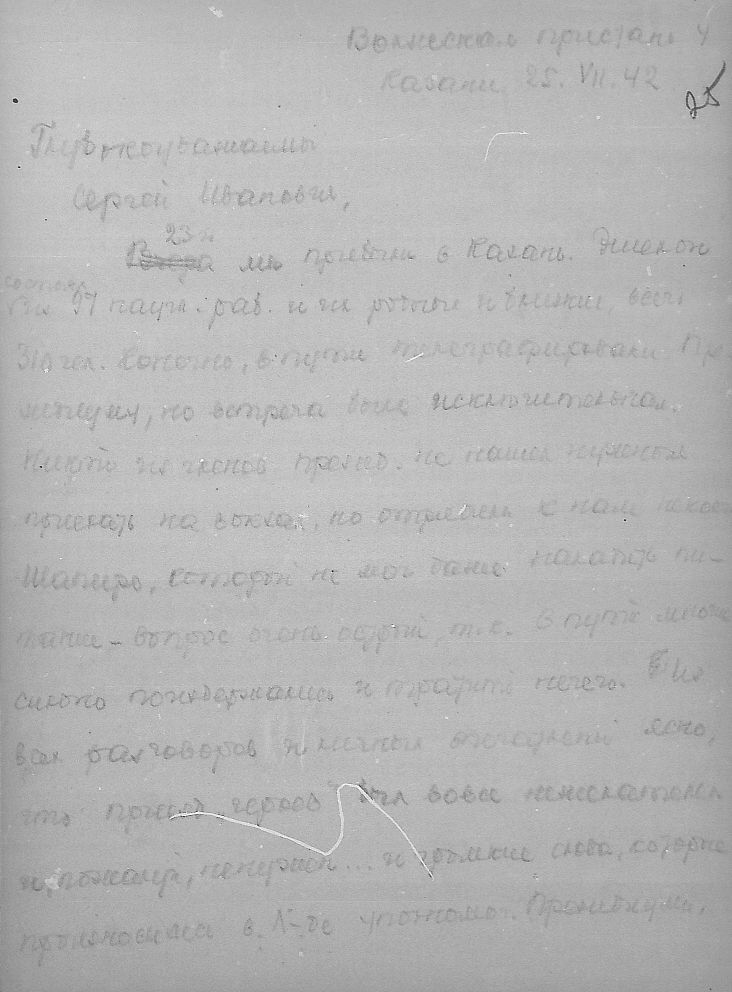 Волжская пристань у
Казани, 25. VII. 42
25
Глубокоуважаемый
Сергей Иванович,
23го
Вчера мы приехали в Казань. Эшелон
состоял
из 97 научн. раб. и их родные и близкие, всего
310 чел. Конечно, в пути телеграфировали Пре-
зидиуму, но встреча была исключительная.
Никто из членов презид. не нашел нужным
приехать на вокзал, но отрядили к нам некоего
Шапиро, который не мог даже наладить пи-
тание – вопрос очень острый, т.к. в пути многие
сильно поиздержались и тратить нечего. Из
всех разговоров и личных впечатлений ясно,
что приезд „героев“ был вовсе нежелателен
и, пожалуй, ненужен... и громкие слова, которые
произносились в Л-де упомомоч. Президиума,